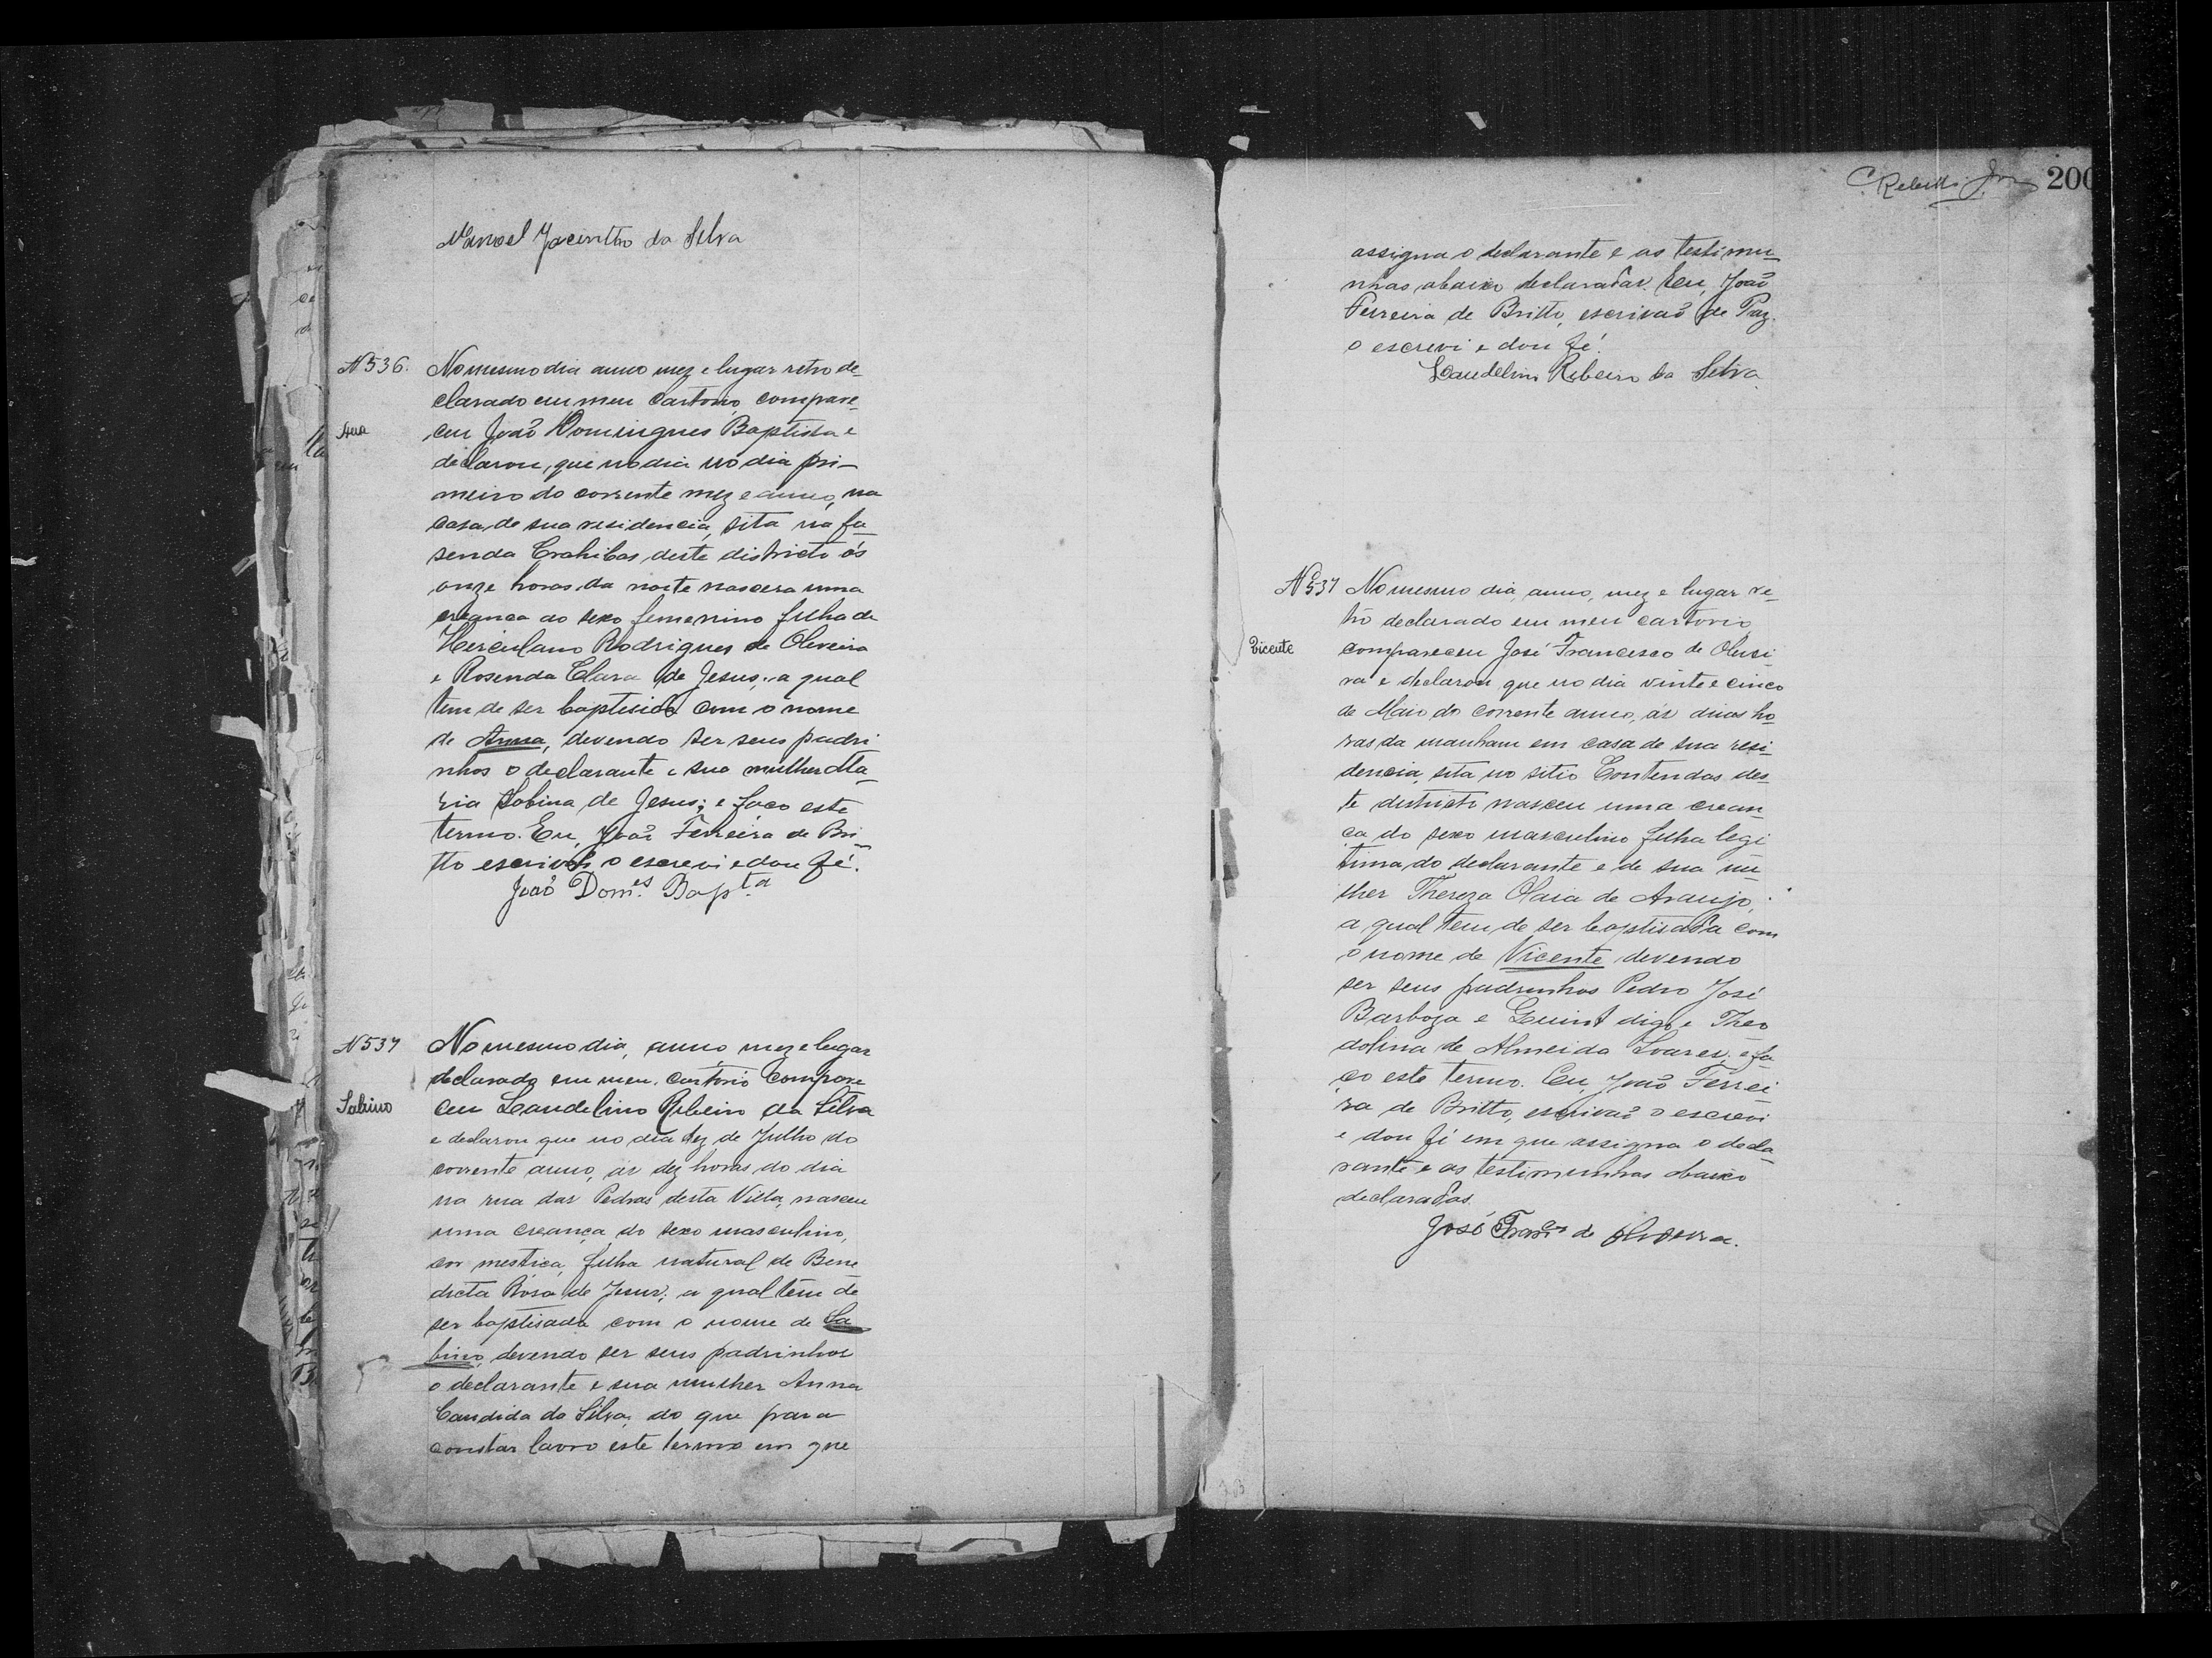 Manoel Jacintho da Silva
N 536. No mesmo dia anno mez e lugar retro de-
clarado em meu Cartorio, compare-
Ana
ceu João Domingues Baptista e
declarou, que no dia no dia pri-
meiro do corrente mez e anno, na
casa de sua residencia, sita na fa-
senda Crahibas deste districto ás
onze horas da noite nascera uma
creança do sexo femenino filha de
Herculano Rodrigues de Oliveira
e Rosenda Clara de Jesus, a qual
tem de ser baptisida com o nome
de Anna, devendo ser seus padri
nhos o declarante e sua mulher Ma-
ria Sabina de Jesus; e faço este
termo. Eu, João Ferreira de Bri-
tto escrivão o escrevi e dou fé.
João Dom.es Bap.ta
N 537 No mesmo dia, anno mez e lugar
declarado em meu Cartorio Compare
Sabino
ceu Laudelino Ribeiro da Silva
e declarou que no dia dez de Julho do
corrente anno, ás dez horas do dia
na rua das Pedras desta Villa, nasceu
uma creança do sexo masculino,
cor mestiça, filha natural de Bene
dicta Rosa de Jesus; a qual tem de
ser baptisada com o nome de Sa
bino, devendo ser seus padrinhos
o declarante e sua mulher Anna
Candida da Silva, do que para
constar lavro este termo em que
200
assigna o declarante e as testimu-
nhas abaixo declaradas. Eu, João
Ferreira de Britto, escrivão de Paz
o escrevi e dou fé.
Laudelino Ribeiro da Silva
N 537 No mesmo dia, anno, mez e lugar re-
tro declarado em meu cartorio
Vicente
compareceu José Francisco de Olivei-
ra e declarou que no dia vinte e cinco
de Maio do corrente anno, ás duas ho-
ras da manham em casa de sua resi-
dencia, sita no sitio Contendas des-
te districto nasceu uma crean-
ça do sexo masculino filha legi
tima do declarante e de sua mu-
lher Thereza Olaia de Araujo,
a qual tem de ser baptisada com
o nome de Vicente devendo
ser seus padrinhos Pedro José
Barboza e Quint digo e Theo
dolina de Almeida Soares, e fa-
ço este termo. Eu, João Ferrei
ra de Britto, escrivão o escrevi
e dou fé em que assigna o decla-
rante e as testimunhas abaixo
declaradas.
José Fran.co de Oliveira.